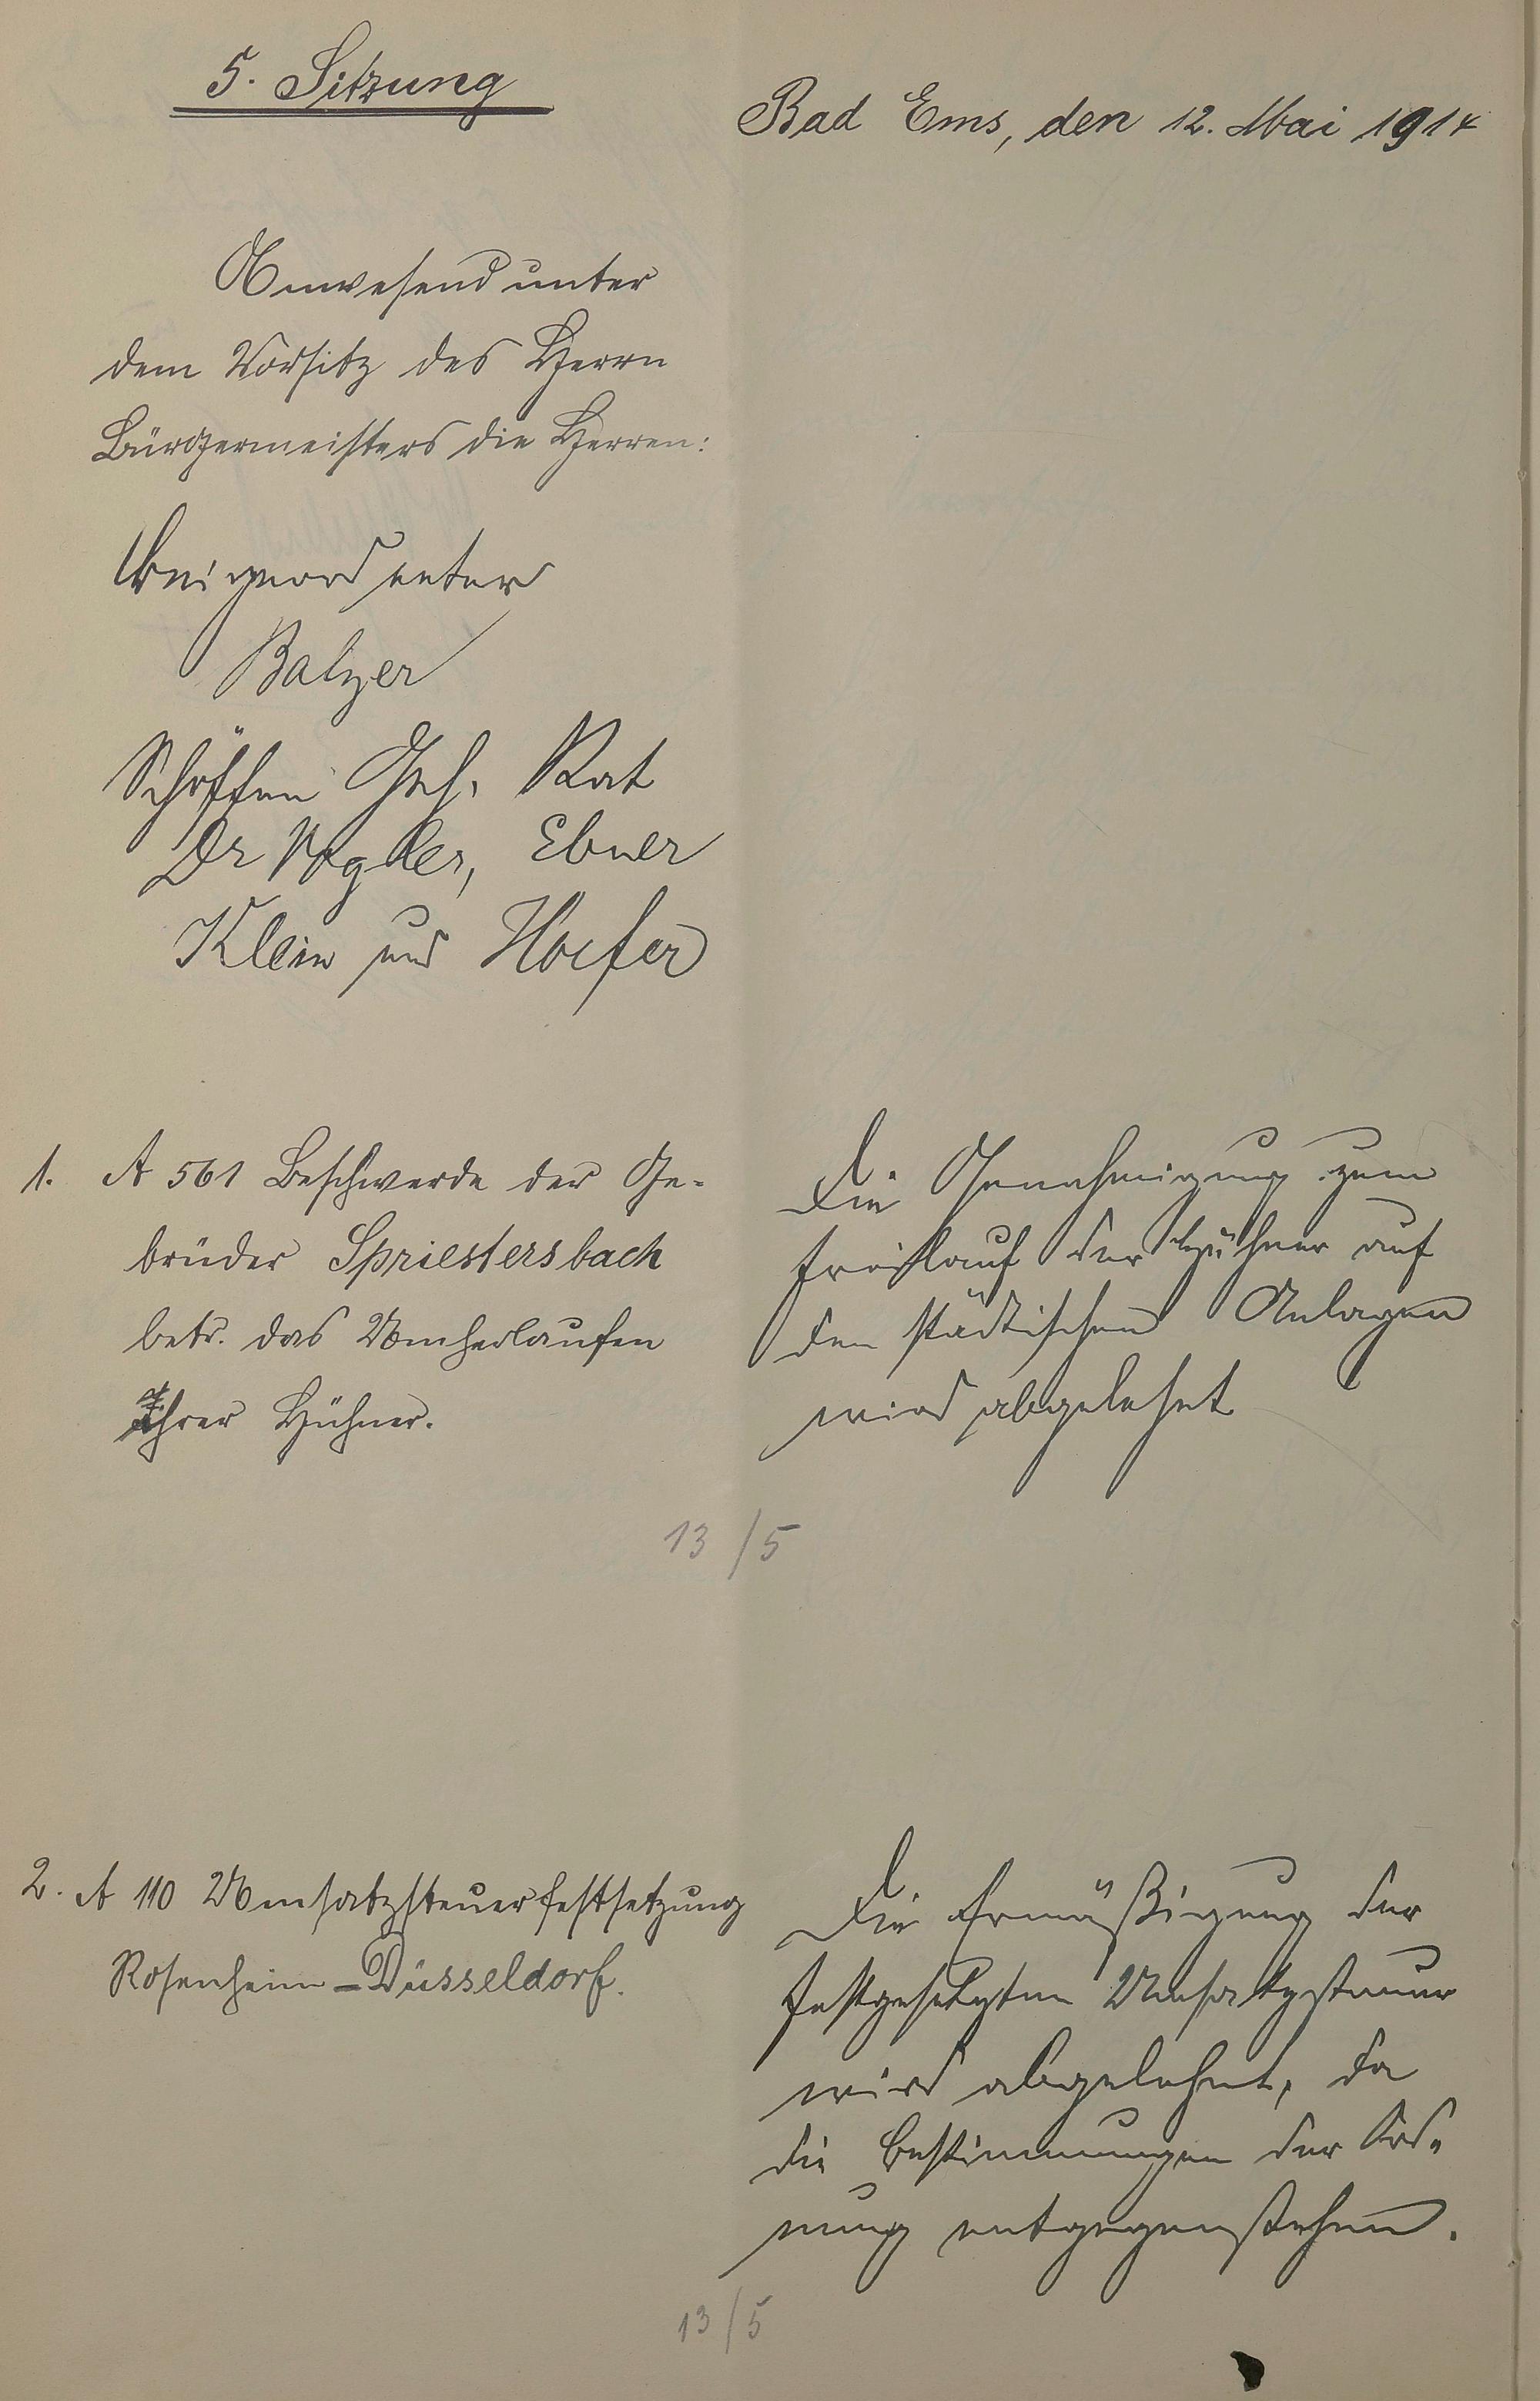 5. Sitzung
Bad Ems, den 12. Mai 1914
Anwesend unter
dem Vorsitz des Herrn
Bürgermeisters die Herren:
Beigeordneter
Balzer
Schöffen Geh. Rat
Dr Vogler, Ebner
Klein und Hoefer
1. A 561 Beschwerde der Ge-
brüder Spriestersbach
betr. das Umherlaufen
Ihrer Hühner.
Die Genehmigung zum
Freilauf der Hühner auf
den städtischen Anlagen
wird abgelehnt
13/5
2. A 110 Umsatzsteuerfestsetzung
Rosenheim-Düsseldorf.
Die Ermäßigung der
festgesetzten Umsatzsteuer
wird abgelehnt, da
die Bestimmungen der Ord-
nung entgegenstehen.
13/5